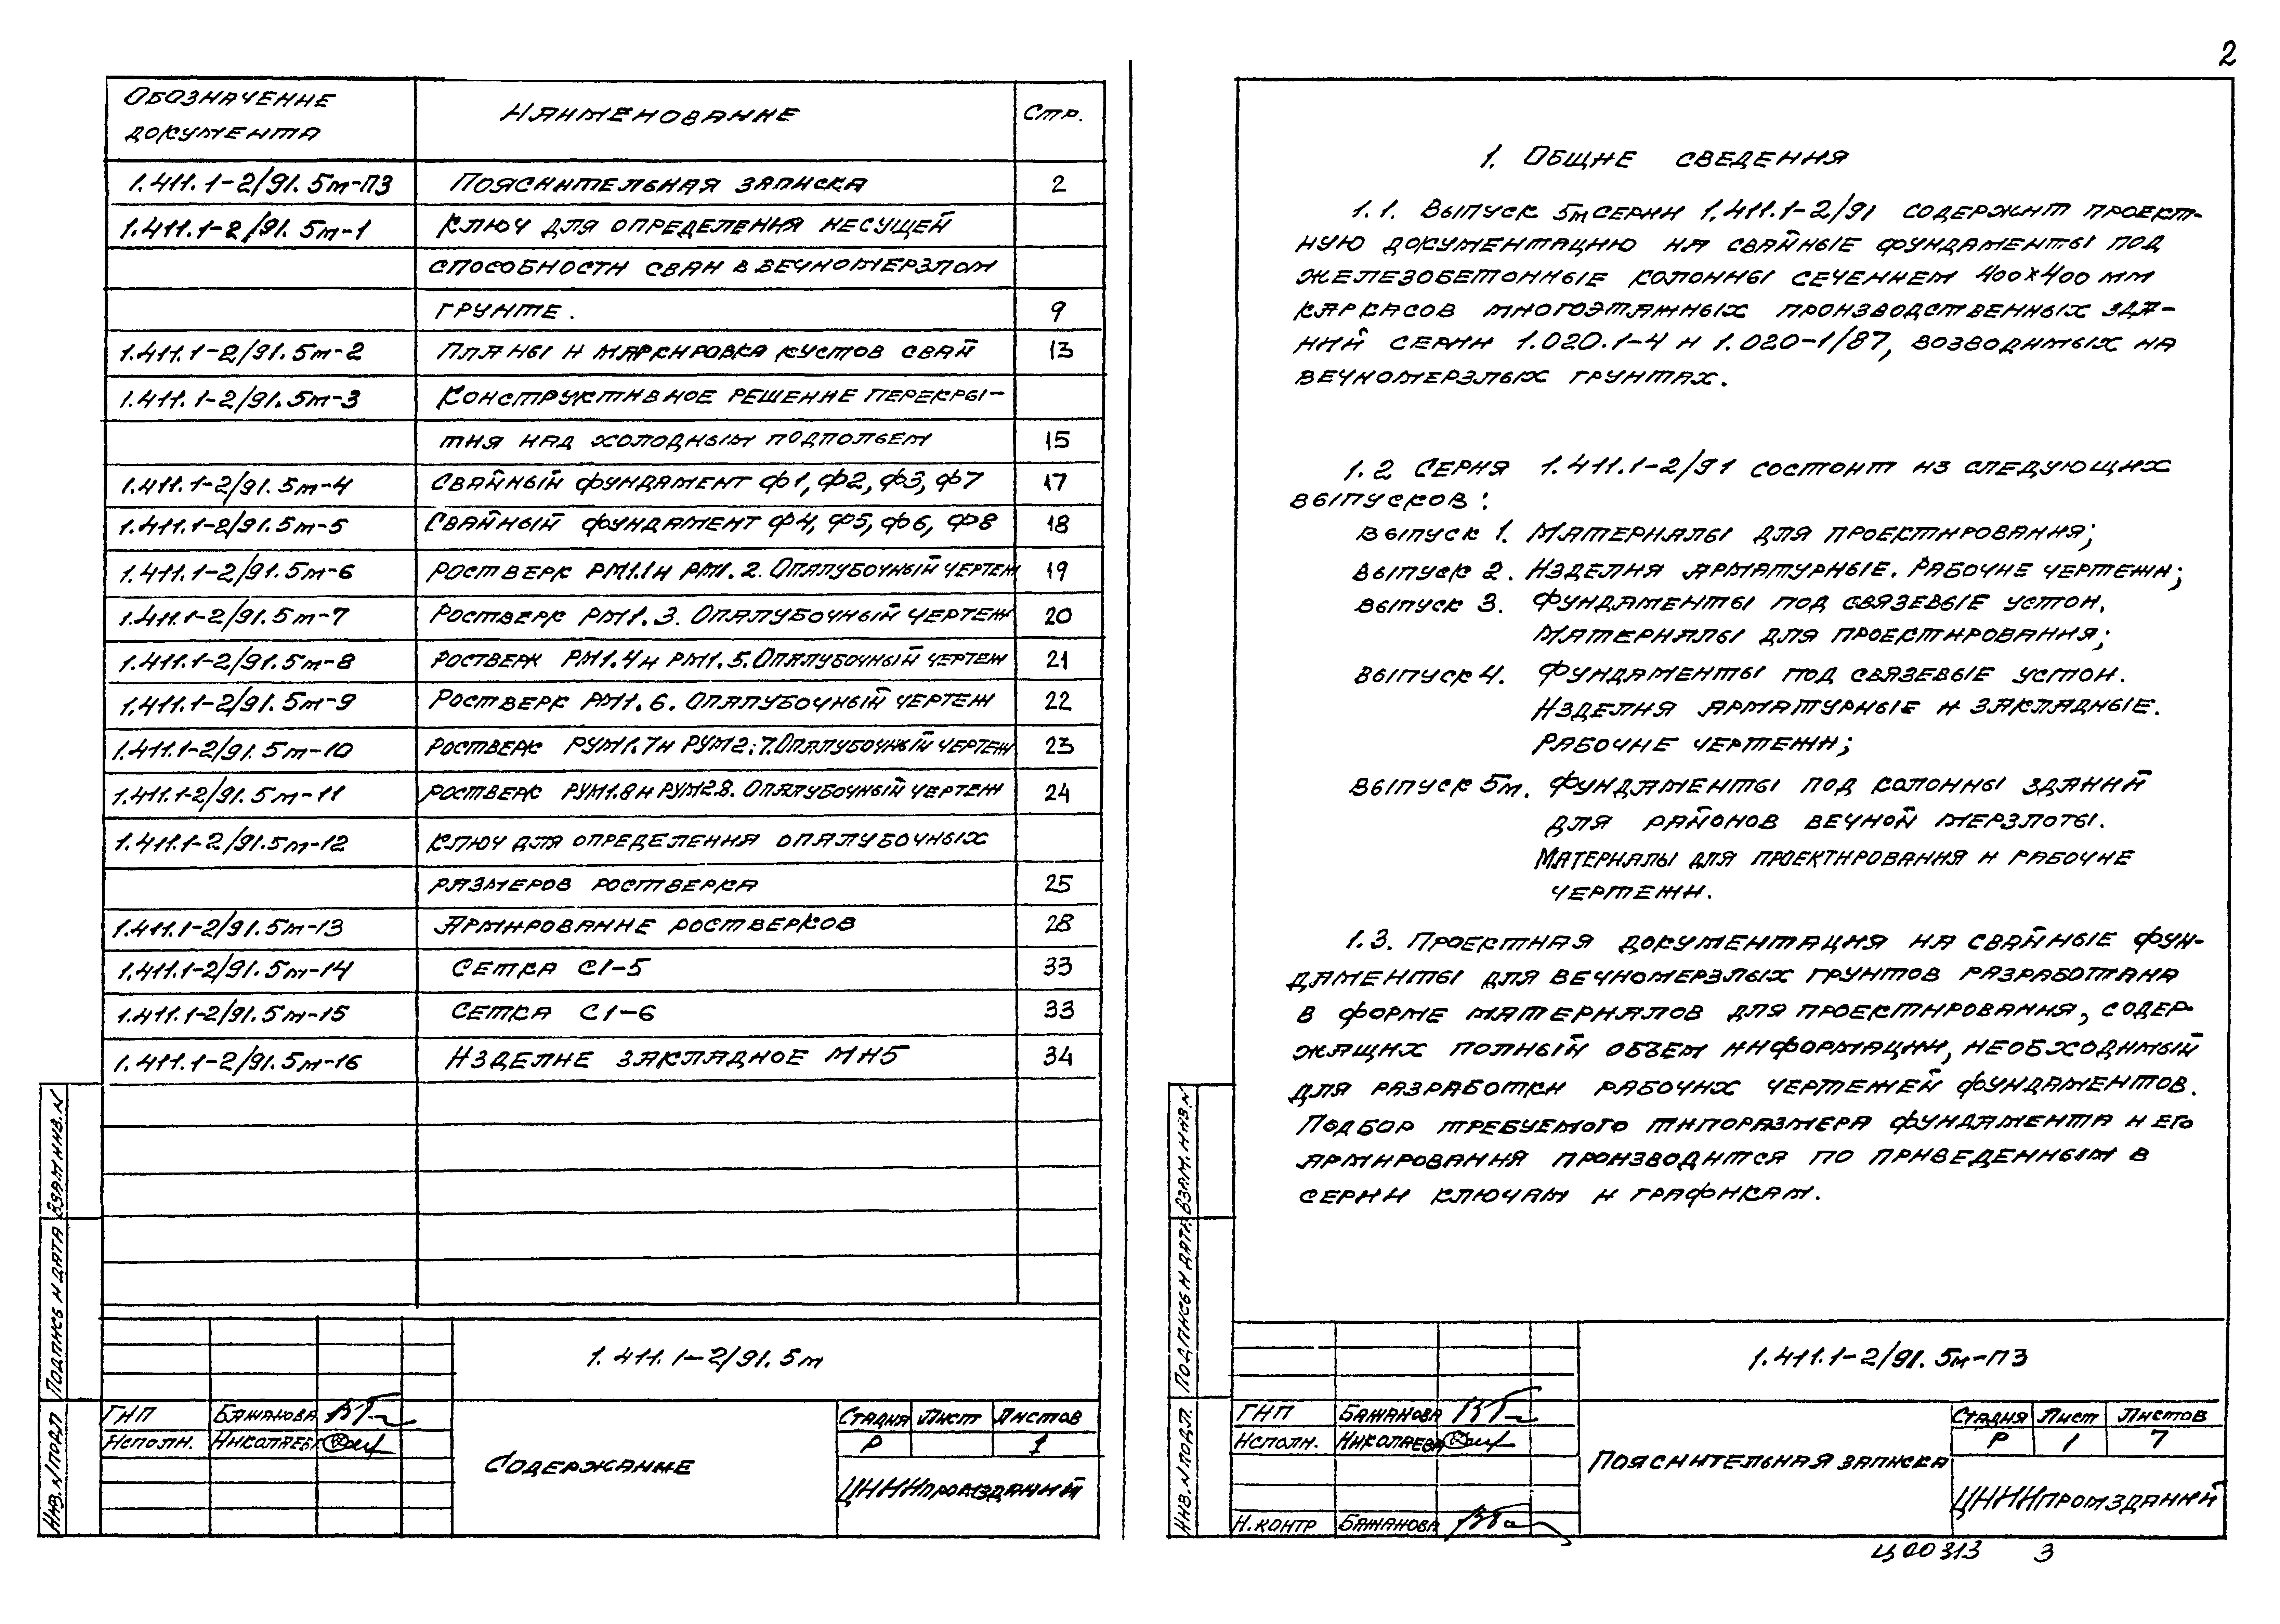 2
Обозначение документа Наименование Стр.
1.411.1-2/91.5м-ПЗ Пояснительная записка 2
1.411.1-2/91.5м-1 Ключ для определения несущей
способности сваи в вечномерзлом
грунте. 9
1.411.1-2/91.5м-2 Планы и маркировка кустов свай 13
1.411.1-2/91.5м-3 Конструктивное решение перекры-
тия над холодным подпольем 15
1.411.1-2/91.5м-4 Свайный фундамент Ф1, Ф2, Ф3, Ф7 17
1.411.1-2/91.5м-5 Свайный фундамент Ф4, Ф5, Ф6, Ф8 18
1.411.1-2/91.5м-6 Ростверк РМ1.1 и РМ1.2. Опалубочный чертеж 19
1.411.1-2/91.5м-7 Ростверк РМ1.3. Опалубочный чертеж 20
1.411.1-2/91.5м-8 Ростверк РМ1.4 и РМ1.5. Опалубочный чертеж 21
1.411.1-2/91.5м-9 Ростверк РМ1.6. Опалубочный чертеж 22
1.411.1-2/91.5м-10 Ростверк РУМ1.7 и РУМ2.7. Опалубочный чертеж 23
1.411.1-2/91.5м-11 Ростверк РУМ1.8 и РУМ2.8. Опалубочный чертеж 24
1.411.1-2/91.5м-12 Ключ для определения опалубочных
размеров ростверка 25
1.411.1-2/91.5м-13 Армирование ростверков 28
1.411.1-2/91.5м-14 Сетка С1-5 33
1.411.1-2/91.5м-15 Сетка С1-6 33
1.411.1-2/91.5м-16 Изделие закладное МН5 34
Взам инв. N
Подпись и дата
Инв. N подл
1.411.1-2/91.5м
ГИП Бажанова
Исполн. Николаева
Содержание
Стадия Лист Листов
Р 1
ЦНИИпромзданий
1. Общие сведения
1.1. Выпуск 5м серии 1.411.1-2/91 содержит проект-
ную документацию на свайные фундаменты под
железобетонные колонны сечением 400х400 мм
каркасов многоэтажных производственных зда-
ний серии 1.020.1-4 и 1.020-1/87, возводимых на
вечномерзлых грунтах.
1.2 Серия 1.411.1-2/91 состоит из следующих
выпусков:
Выпуск 1. Материалы для проектирования;
Выпуск 2. Изделия арматурные. Рабочие чертежи;
Выпуск 3. Фундаменты под связевые устои.
Материалы для проектирования;
Выпуск 4. Фундаменты под связевые устои.
Изделия арматурные и закладные.
Рабочие чертежи;
Выпуск 5м. Фундаменты под колонны зданий
для районов вечной мерзлоты.
Материалы для проектирования и рабочие
чертежи.
1.3. Проектная документация на свайные фун-
даменты для вечномерзлых грунтов разработана
в форме материалов для проектирования, содер-
жащих полный объем информации, необходимый
для разработки рабочих чертежей фундаментов.
Подбор требуемого типоразмера фундамента и его
армирования производится по приведенным в
серии ключам и графикам.
Взам. инв. N
Подпись и дата
Инв. N подл.
1.411.1-2/91.5м-ПЗ
ГИП Бажанова
Исполн. Николаева
Н.контр Бажанова
Пояснительная записка
Стадия Лист Листов
Р 1 7
ЦНИИпромзданий
Ц00313 3